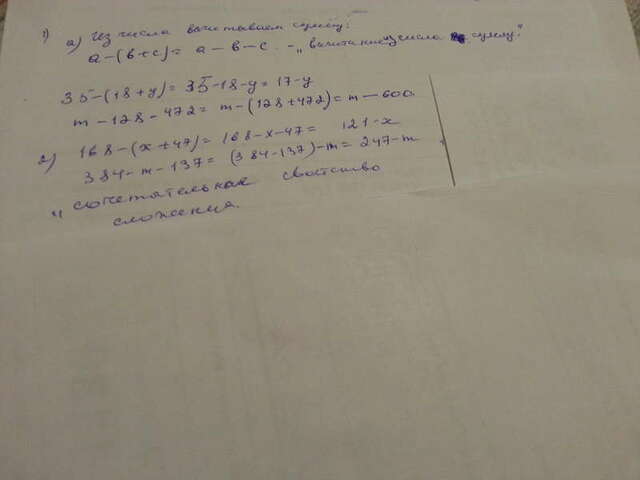 1) а) Из числа вычитываем сумму:
а-(в+с)= а-в-с. -„вычитание из числа сумму."
35-(18+y)= 35-18-y= 17-y
m-128-472= m-(128+472)= m-600.
2) 168-(x+47)= 168-x-47= 121-x
384-m-137= (384-137)-m= 247-m
„сочетательное свойство
сложения.